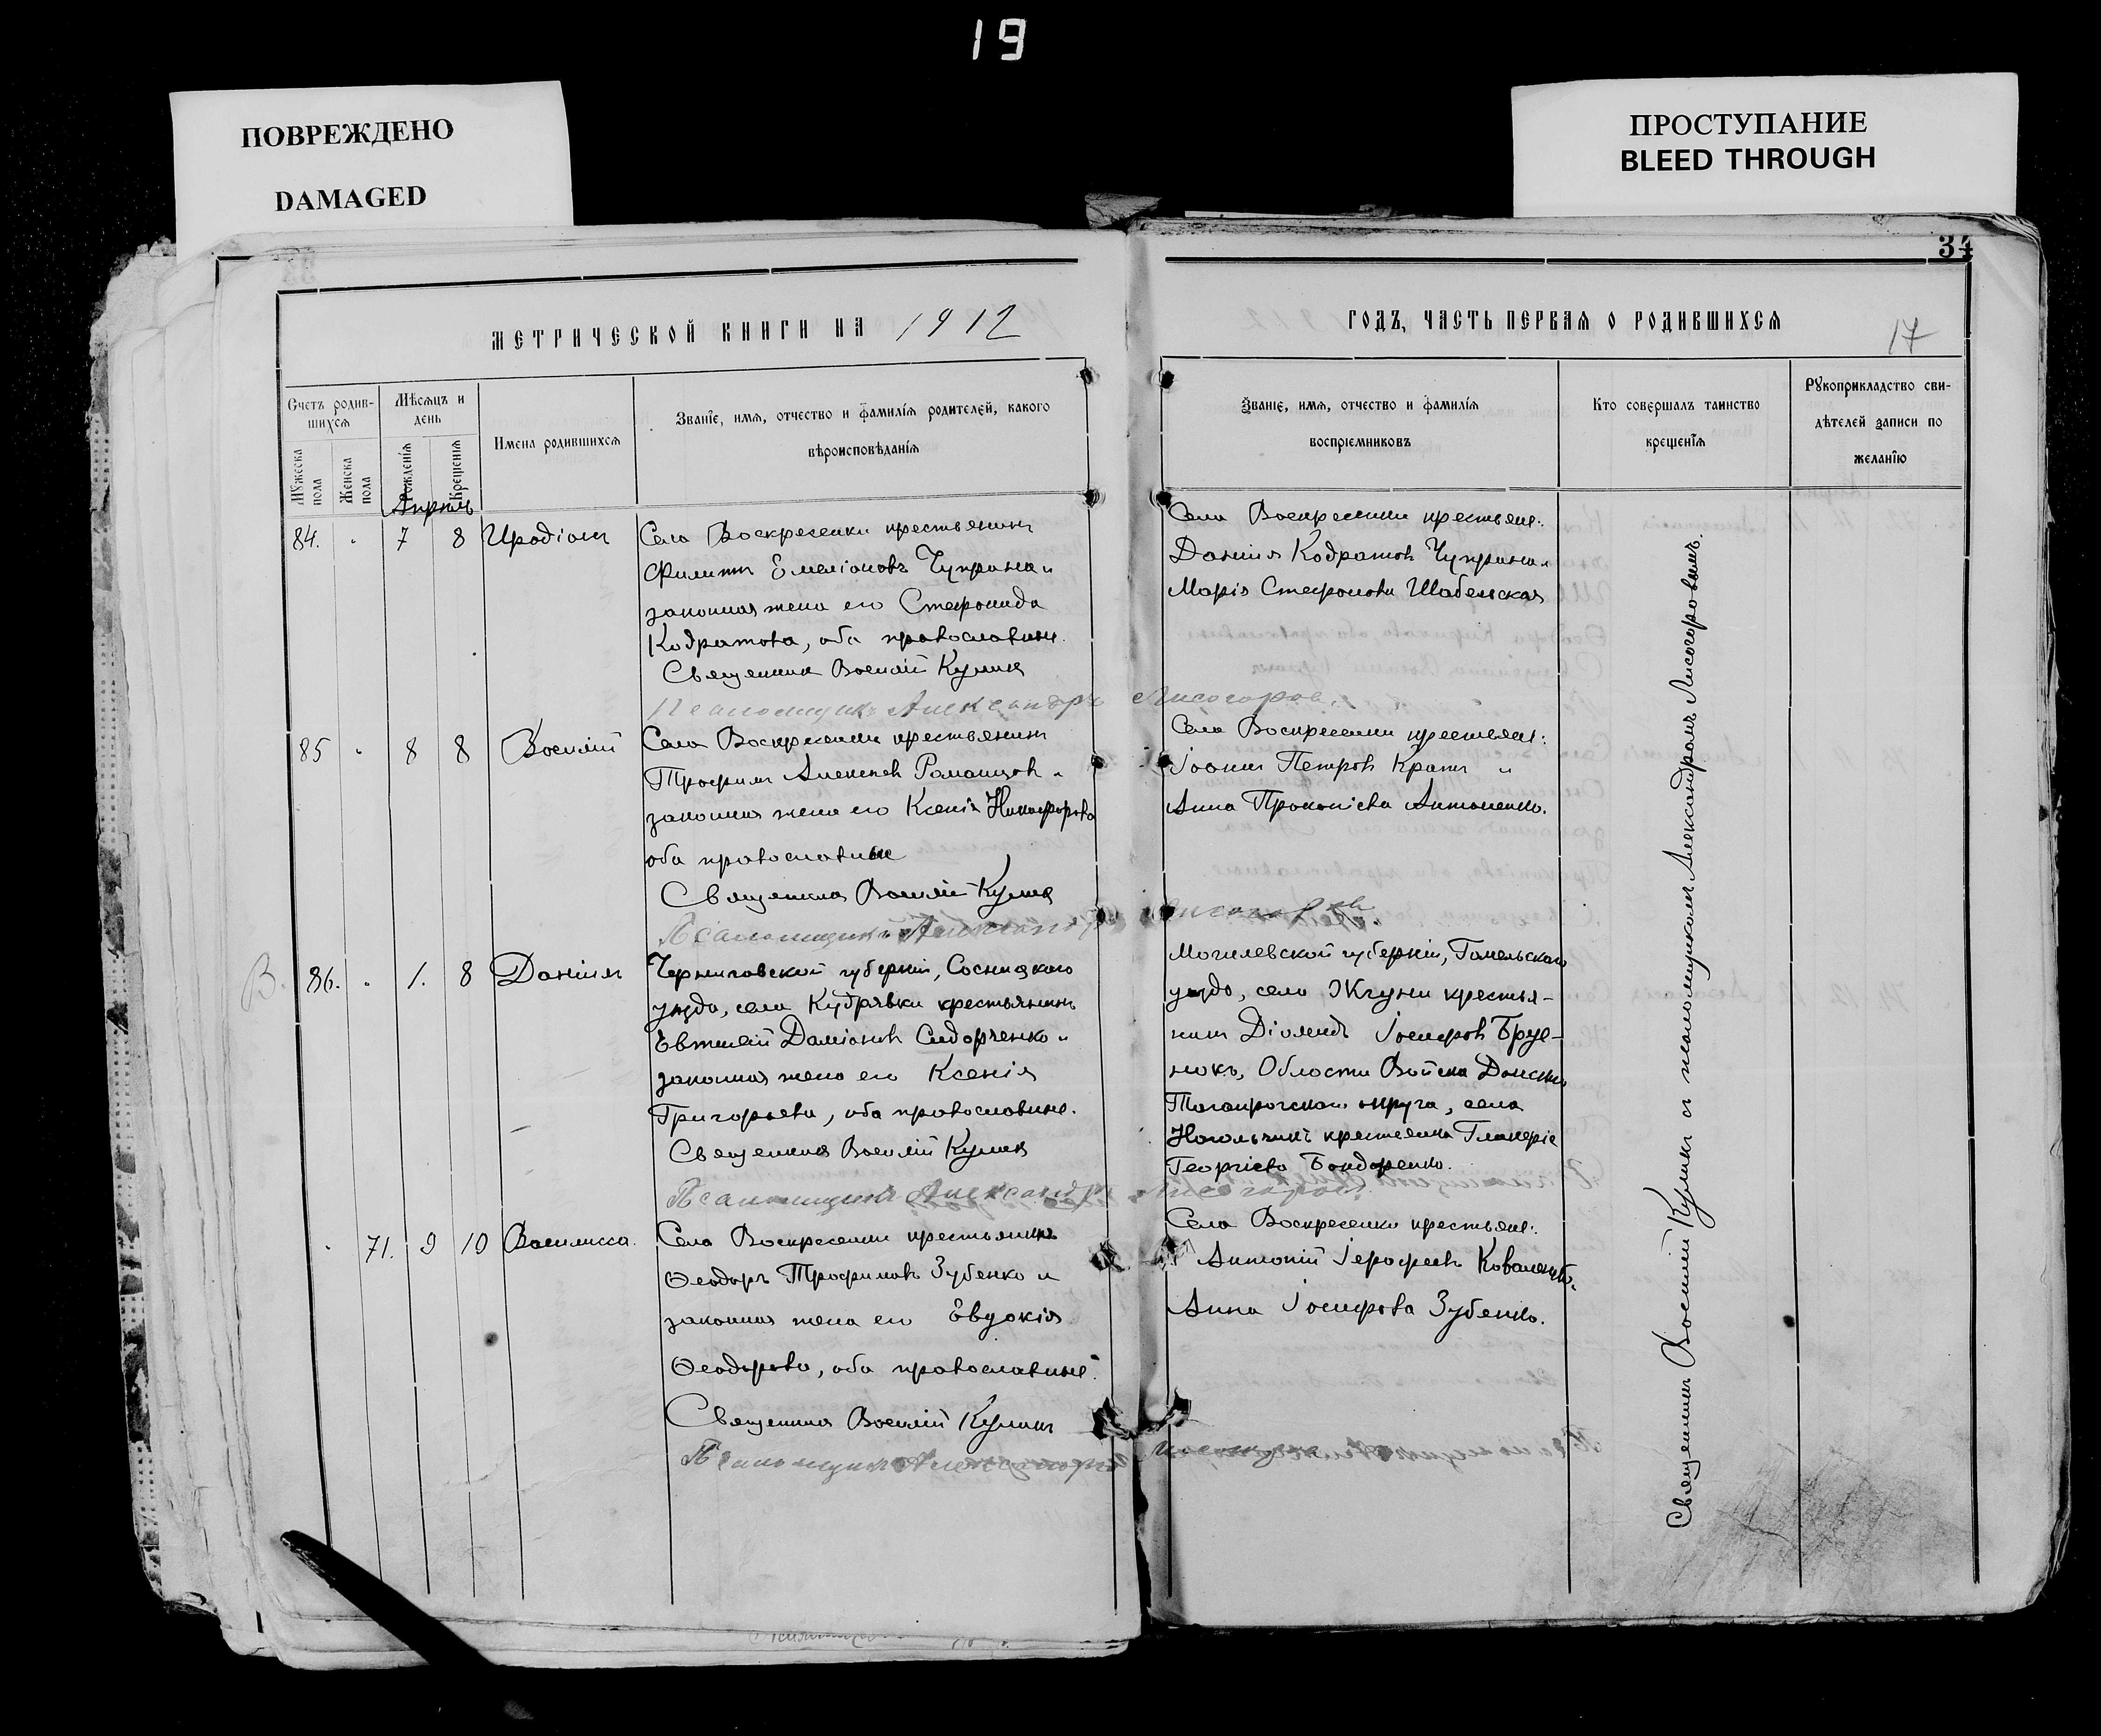 19
ПОВРЕЖДЕНО
DAMAGED
ПРОСТУПАНИЕ
BLEED THROUGH
34
МЕТРИЧЕСКОЙ КНИГИ НА 1912
ГОДЪ, ЧАСТЬ ПЕРВАЯ О РОДИВШИХСЯ
17
Счетъ родив-
шихся
Мѣсяцъ и
день
Мужеска
пола
Женска
пола
Рожденія
Крещенія
Имена родившихся
Званіе, имя, отчество и фамилія родителей, какого
вѣроисповѣданія
Званіе, имя, отчество и фамилія
воспріемниковъ
Кто совершалъ таинство
крещенія
Рукоприкладство сви-
дѣтелей записи по
желанію
Апрѣль
84. " 7 8 Иродіонъ
Села Воскресенки крестьянинъ
Филиппъ Емеліановъ Чуприна и
законная жена его Стефанида
Кодратова, оба православные.
Священникъ Василій Куликъ
Псаломщикъ Александръ Лисогоровъ
Села Воскресенки крестьяне:
Даніилъ Кодратовъ Чуприна и
Марія Стефанова Шабельская
85 " 8 8 Василій
Села Воскресенки крестьянинъ
Трофимъ Алексѣевъ Романцовъ и
законная жена его Ксенія Никифорова
оба православные
Священникъ Василій Куликъ
Псаломщикъ Александръ Лисогоровъ
Села Воскресенки крестьяне:
Іоаннъ Петровъ Кратъ и
Анна Прокопіева Антоненко.
В. 86. " 1. 8 Даніилъ
Черниговской губерніи, Сосницкаго
уѣзда, села Кудрявки крестьянинъ
Евтихій Даміановъ Сидорченко и
законная жена его Ксенія
Григорьева, оба православные.
Священникъ Василій Куликъ
Псаломщикъ Александръ Лисогоровъ
Могилевской губерніи, Гомельскаго
уѣзда, села Жгуни крестья-
нинъ Діомидъ Іосифовъ
Области Войска Донского
Таганрогскаго округа, села
крестьянка Гликерія
Георгіева Бондаренко.
" 71. 9 10 Василисса.
Села Воскресенки крестьянинъ
Ѳеодоръ Трофимовъ Зубенко и
законная жена его Евдокія
Ѳеодорова, оба православные.
Священникъ Василій Куликъ
Псаломщикъ Александръ
Села Воскресенки крестьяне:
Антоній Іерофеевъ Коваленко.
Анна Іосифова Зубенко.
Священникъ Василій Куликъ съ псаломщикомъ Александромъ Лисогоровымъ.